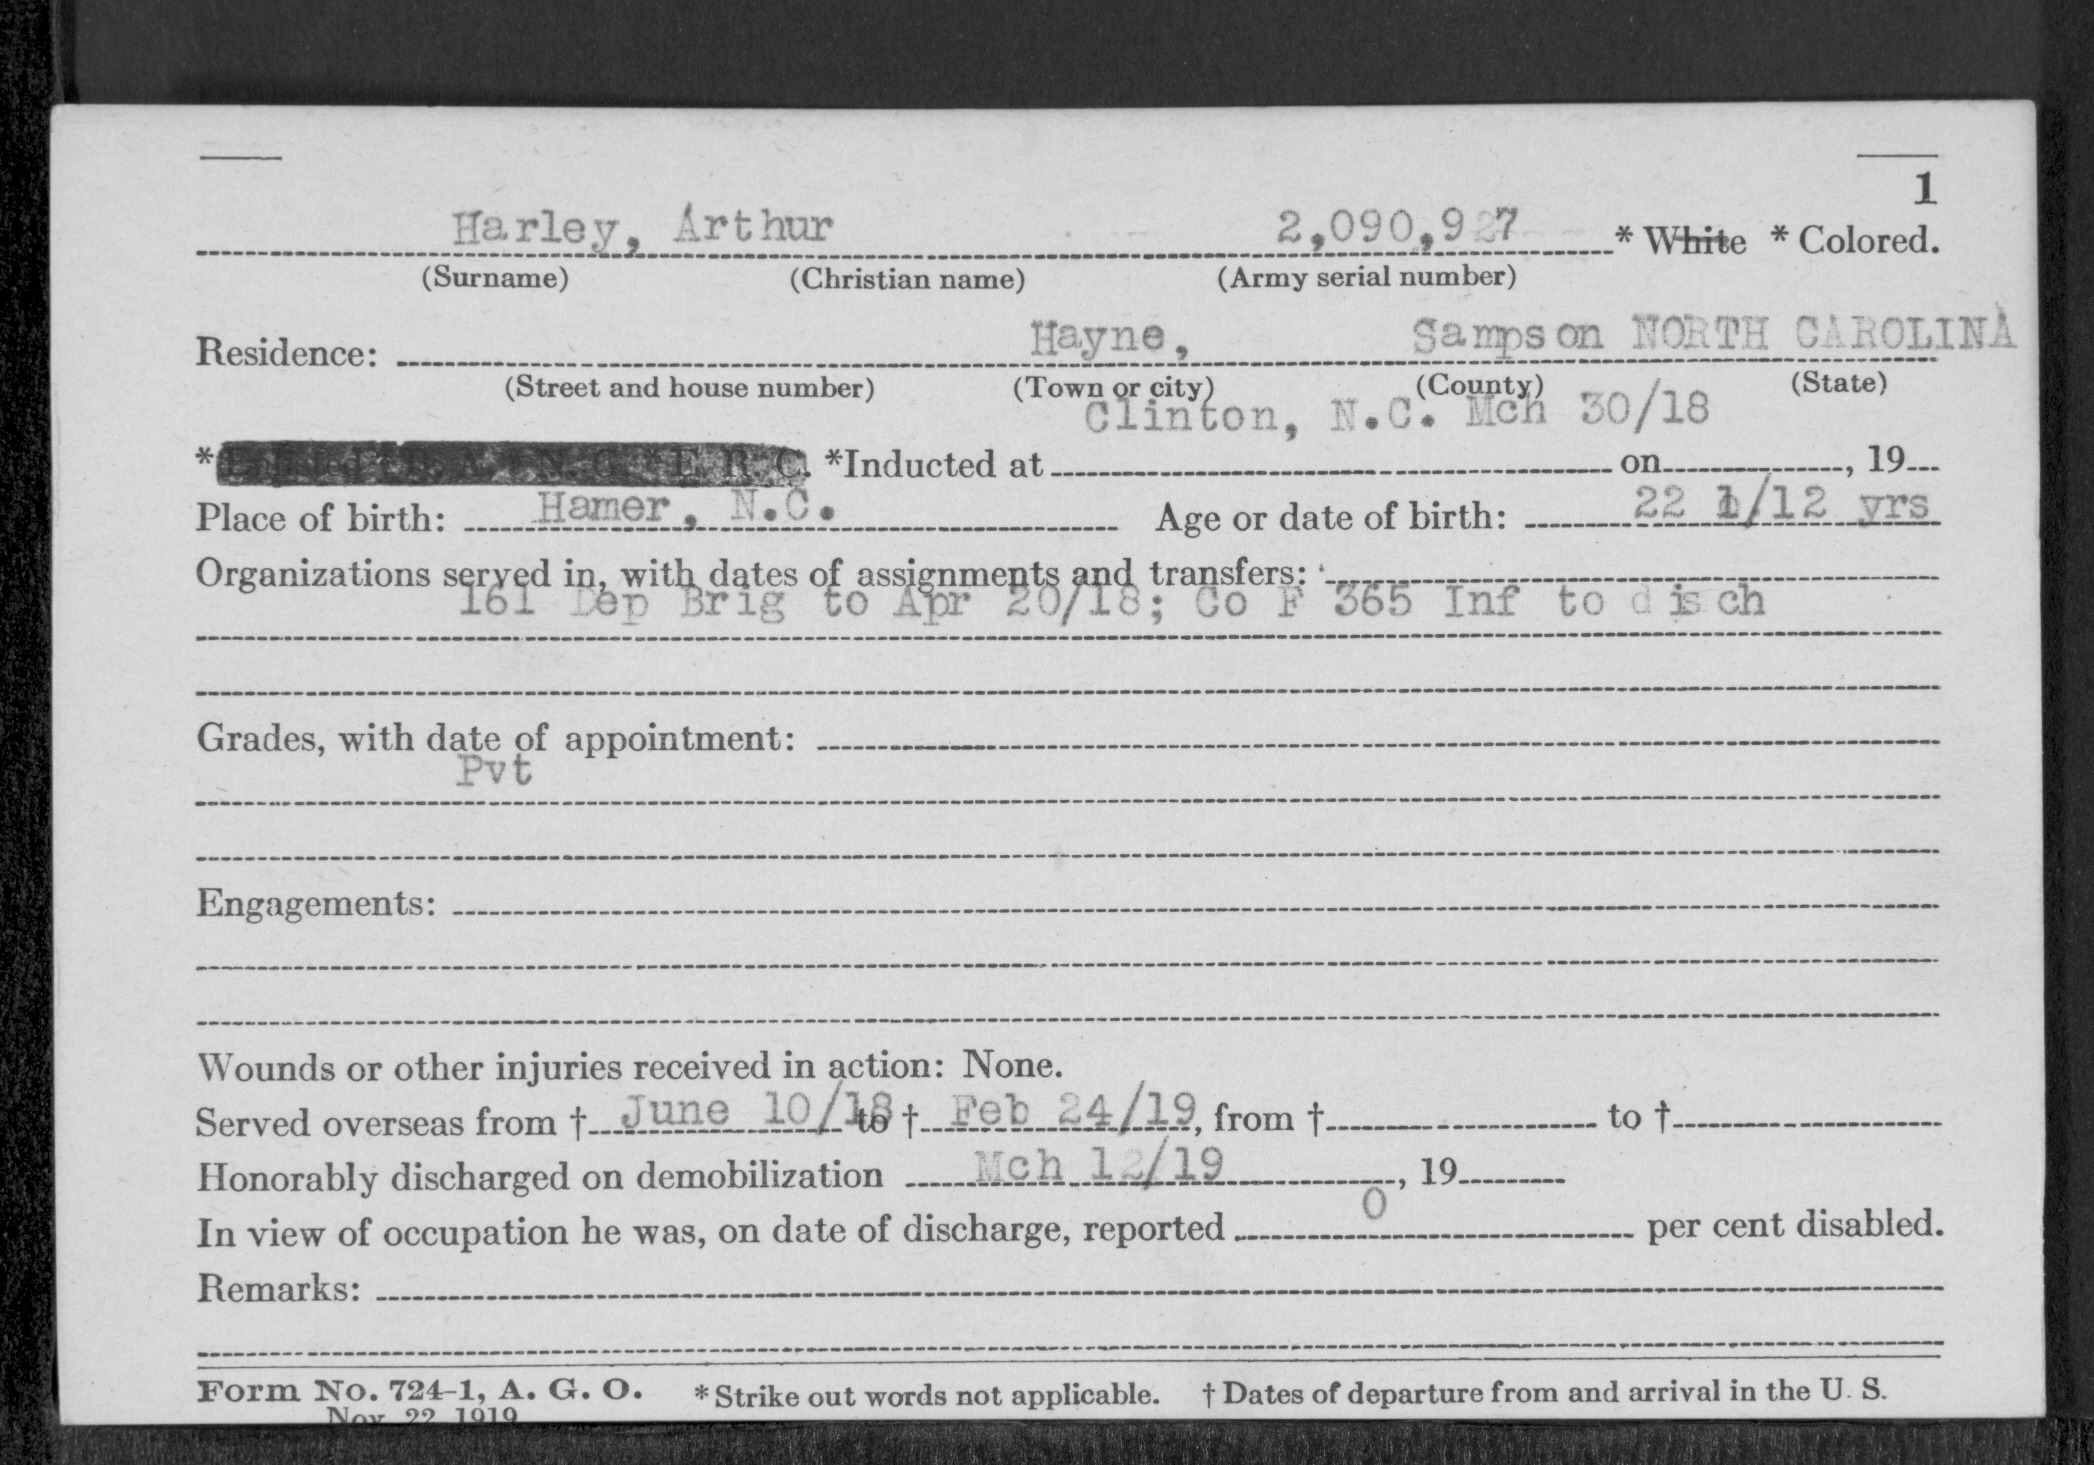 1
Harley, Arthur 2,090,927 * White * Colored.
(Surname) (Christian name) (Army serial number)
Residence: Hayne, Sampson NORTH CAROLINA
(Street and house number) (Town or city) (County) (State)
Clinton, N.C. Mch 30/18
*Enlisted * R. A. * N. G. * E. R. C. *Inducted at on , 19
Place of birth: Hamer, N.C. Age or date of birth: 22 /12 yrs
Organizations served in, with dates of assignments and transfers:
161 Dep Brig to Apr 20/18; Co F 365 Inf to disch
Grades, with date of appointment:
Pvt
Engagements:
Wounds or other injuries received in action: None.
Served overseas from † June 10/18 to † Feb 24/19, from † to †
Honorably discharged on demobilization Mch 12/19 , 19
In view of occupation he was, on date of discharge, reported 0 per cent disabled.
Remarks:
Form No. 724-1, A. G. O. * Strike out words not applicable. † Dates of departure from and arrival in the U. S.
Nov. 22, 1919